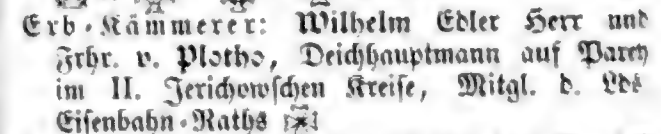 Erb-Kämmerer: Wilhelm Edler Herr und
Frhr. v. Plotho, Deichhauptmann auf Parey
im II. Jerichowschen Kreise, Mitgl. d. Lds
Eisenbahn-Raths